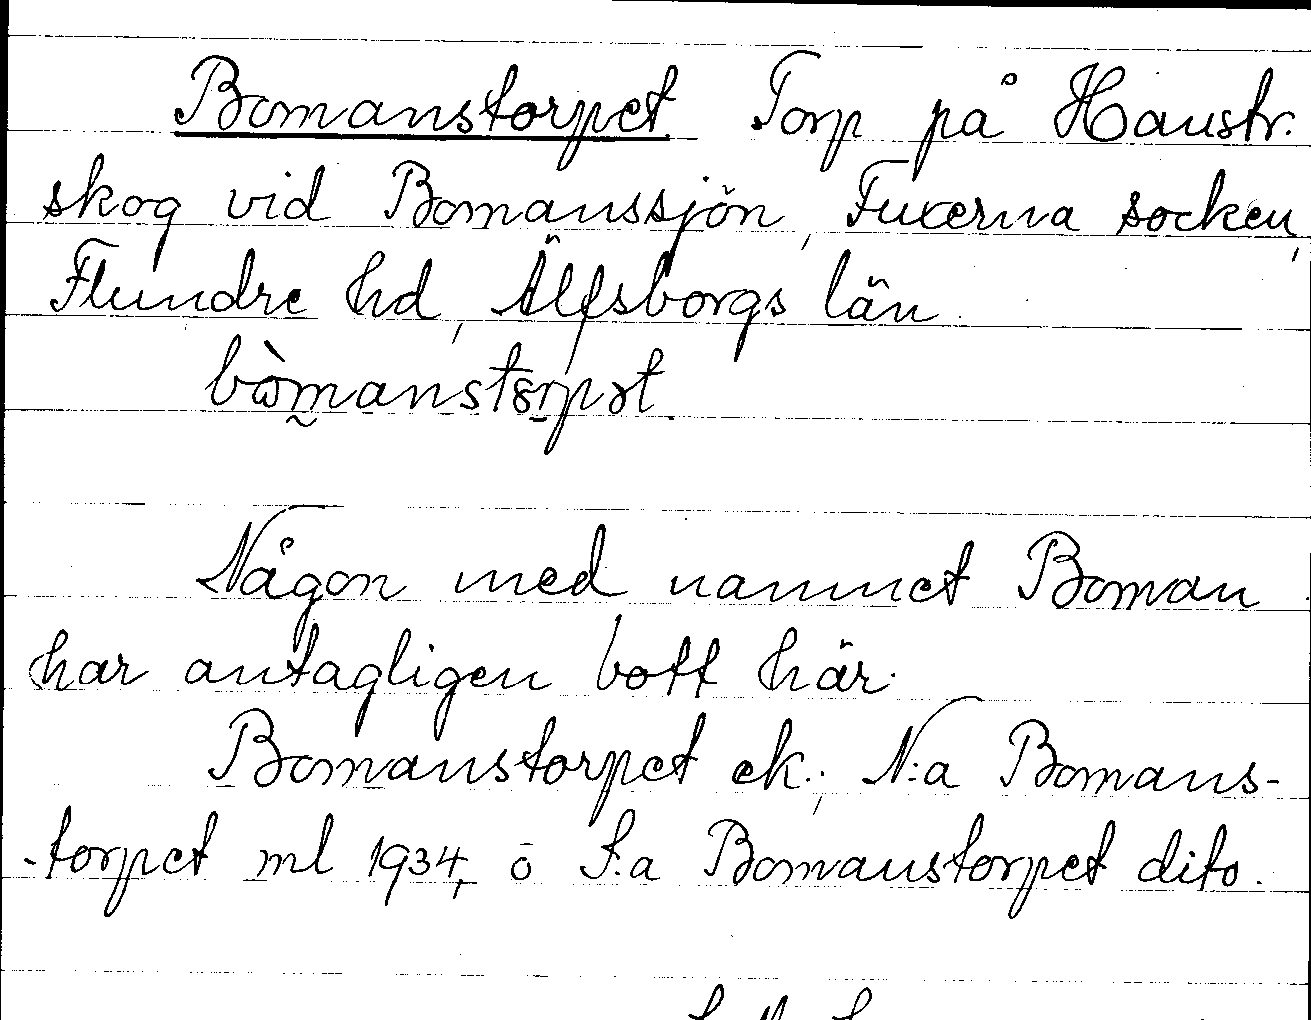 Bomanstorpet Torp på Haustr.
skog vid Bomanssjön, Fuxerna socken,
Flundre hd, Älfsborgs län.
bòmanstɵrpət.
Någon med namnet Boman
har antagligen bott här.
Bomanstorpet ek.; N:a Bomans-
-torpet ml 1934, o S:a Bomanstorpet dito.